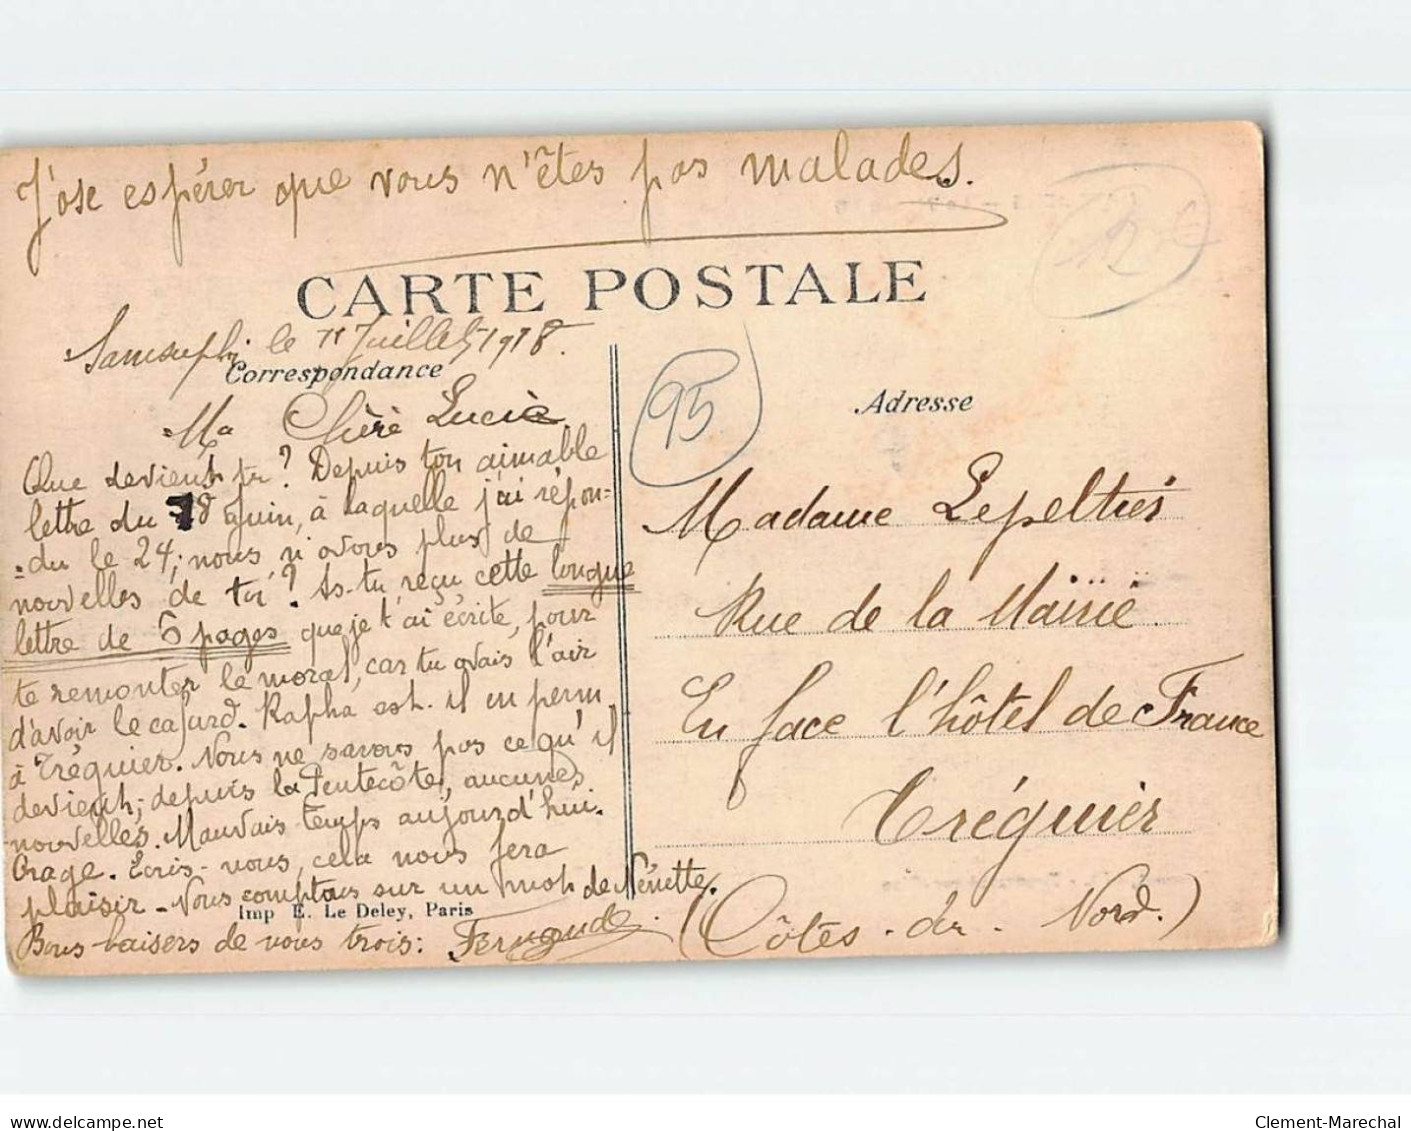 J'ose espérer que vous n'êtes pas malades.
CARTE POSTALE
le 11 Juillet 1918.
Correspondance
Ma Chère Lucie
Que devient tu? Depuis ton aimable
lettre du 18 Juin, à laquelle j'ai répon=
=du le 24; nous n'avons plus de
nouvelles de toi? As-tu reçu cette longue
lettre de 6 pages que je t'ai écrite, pour
te remonter le moral, car tu avais l'air
d'avoir le cafard. Rapha est-il en perm
à Tréguier. Nous ne savons pas ce qu'il
devient; depuis la Pentecôte, aucunes
nouvelles. Mauvais temps aujourd'hui.
Orage. Ecris-nous, cela nous fera
plaisir - Nous comptons sur un mot de Nénette.
Imp E. Le Deley, Paris
Bons baisers de nous trois: Fernande
95
Adresse
Madame Lepeltier
Rue de la Mairie
En face l'hôtel de France
Tréguier
(Côtes-du-Nord.)
Clement-Marechal
delcampe.net